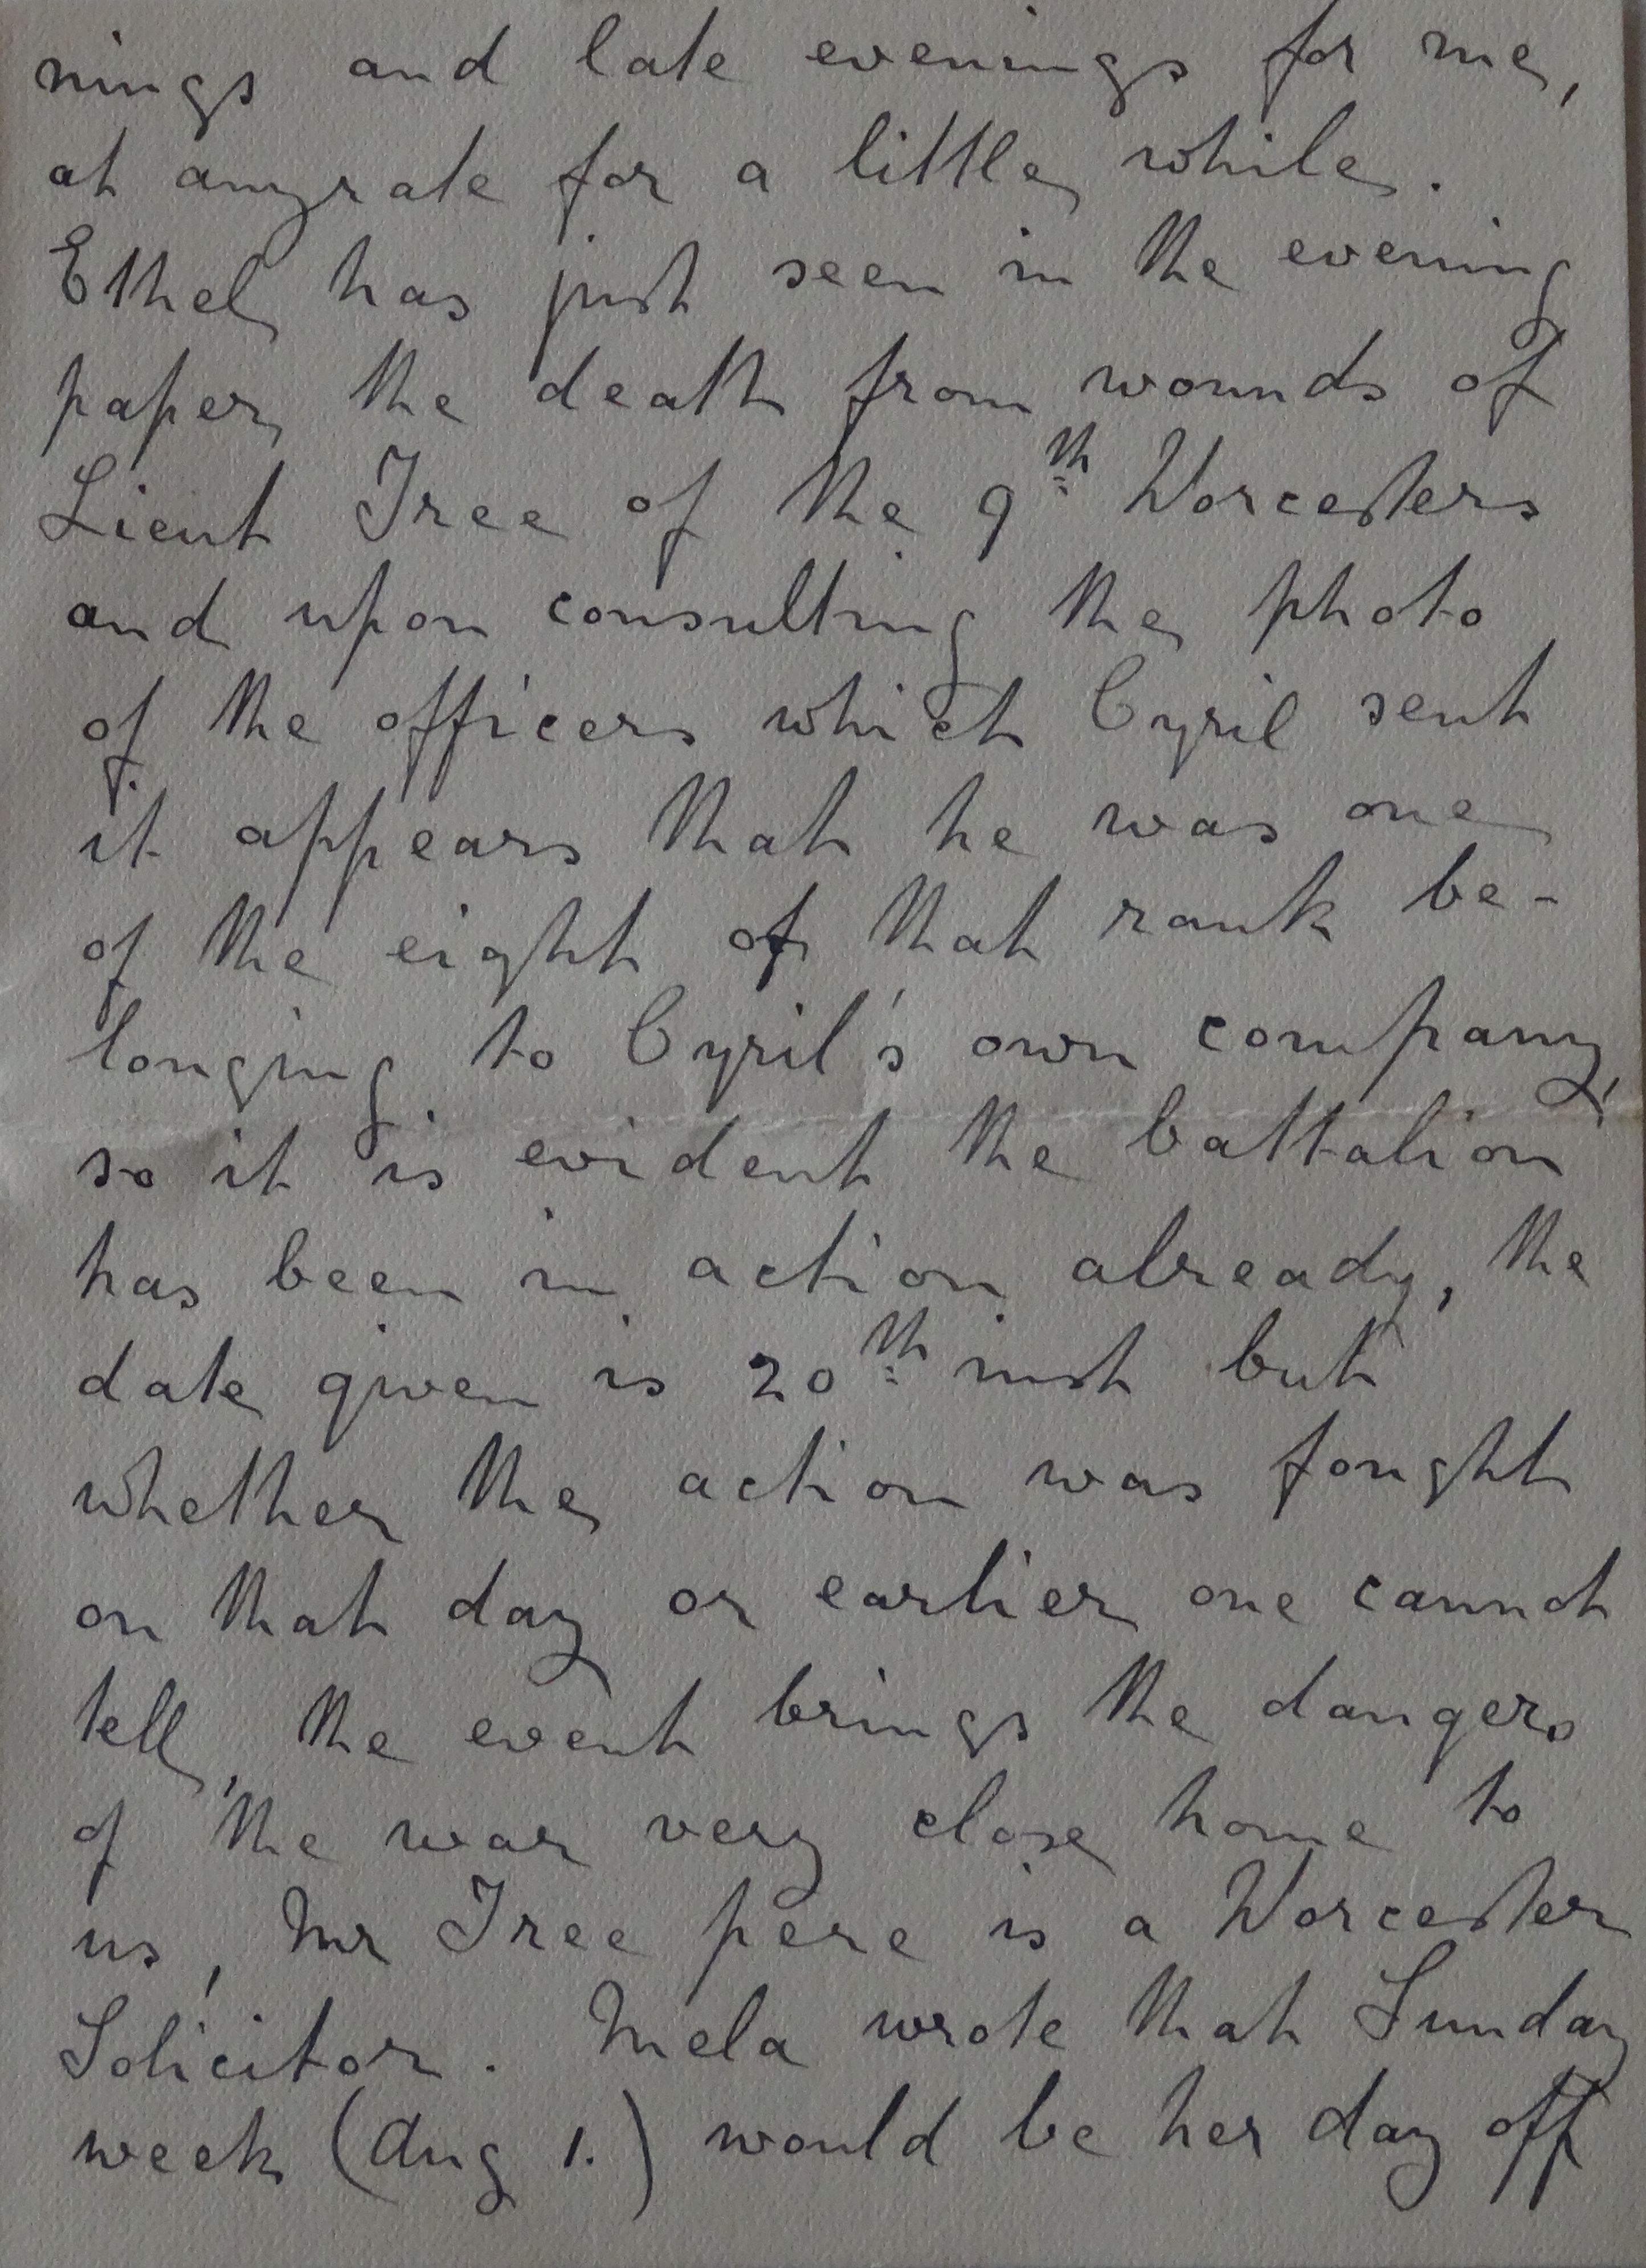 nings and late evenings for me,
at anyrate for a little while.
Ethel has just seen in the evening
paper the death from wounds of
Lieut Tree of the 9th Worcesters
and upon consulting the photo
of the officers which Cyril sent
it appears that he was one
of the eight of that rank be-
longing to Cyril's own company,
so it is evident the battalion
has been in action already, the
date given is 20th inst but
whether the action was fought
on that day or earlier one cannot
tell, the event brings the dangers
of the war very close home to
us, Mr Tree pere is a Worcester
Solicitor. Mela wrote that Sunday
week (Aug 1.) would be her day off